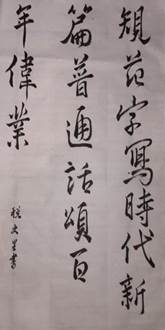 規范字寫時代新
篇普通話頌百
年偉業
税文呈書